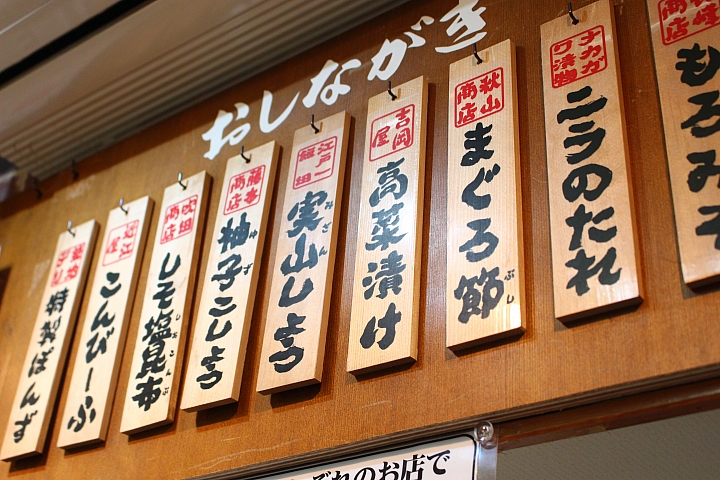 おしながき
もろみそ
ナカガワ漬物
ニラのたれ
秋山商店
まぐろ節
ぶし
吉岡屋
高菜漬け
江戸一
実山しょう
みざん
藤本商店
柚子こしょう
ゆず
吹田商店
しそ塩昆布
しおこんぶ
近江屋
こんびーふ
特製ぽんず
ぞれのお店で